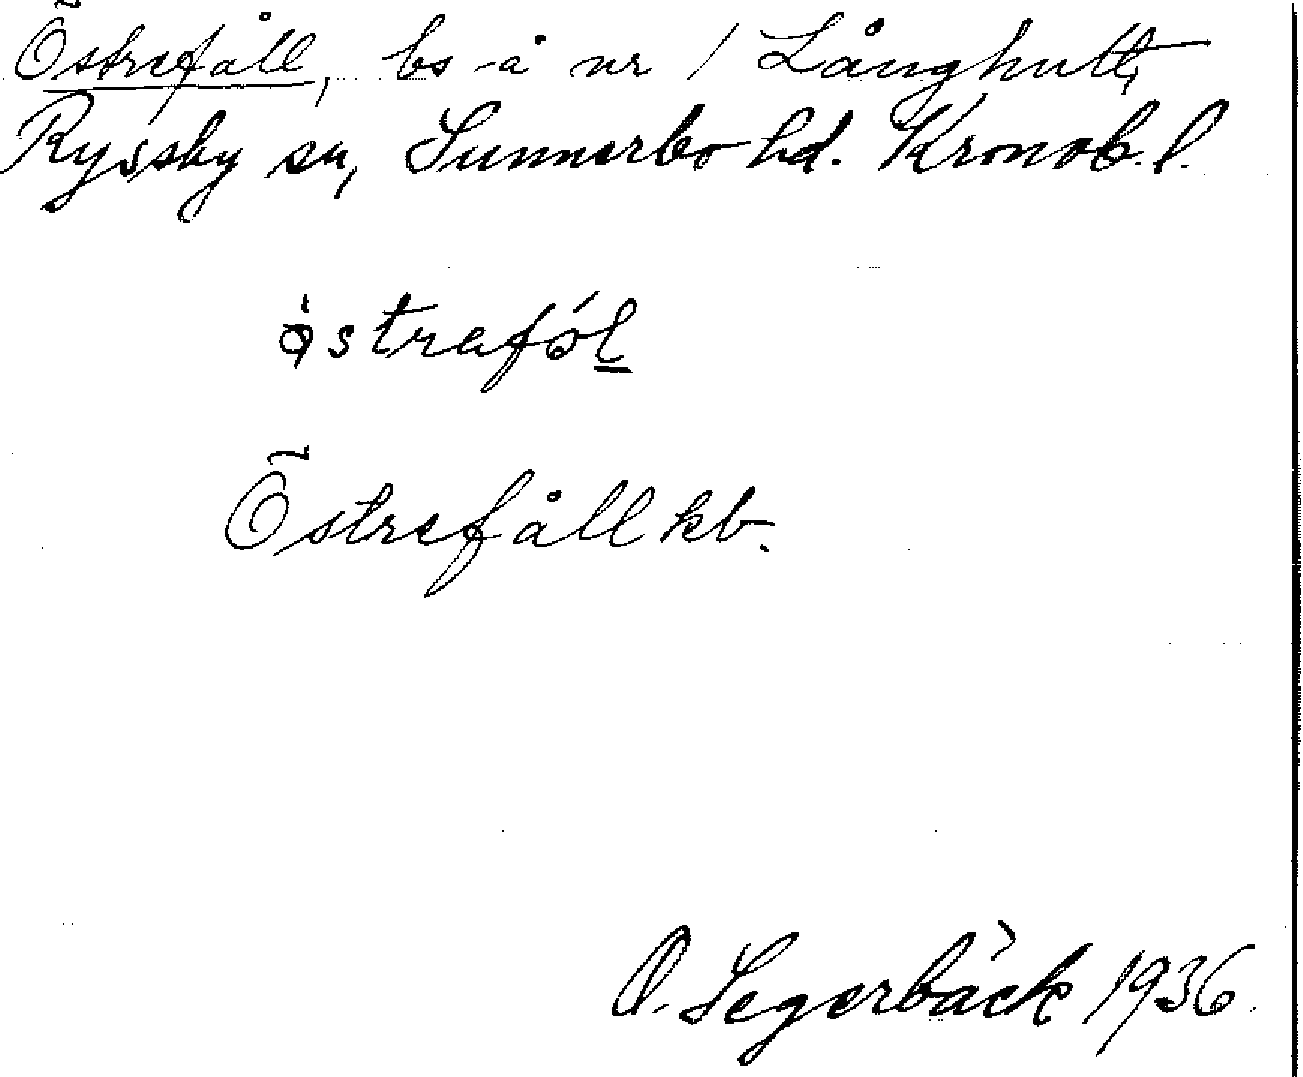 Östrefåll, bs -å nr 1 Långhult,
Ryssby sn, Sunnerbo hd. Kronob. l.
östrafól
Östrefåll kb.
O. Segerbäck 1936.